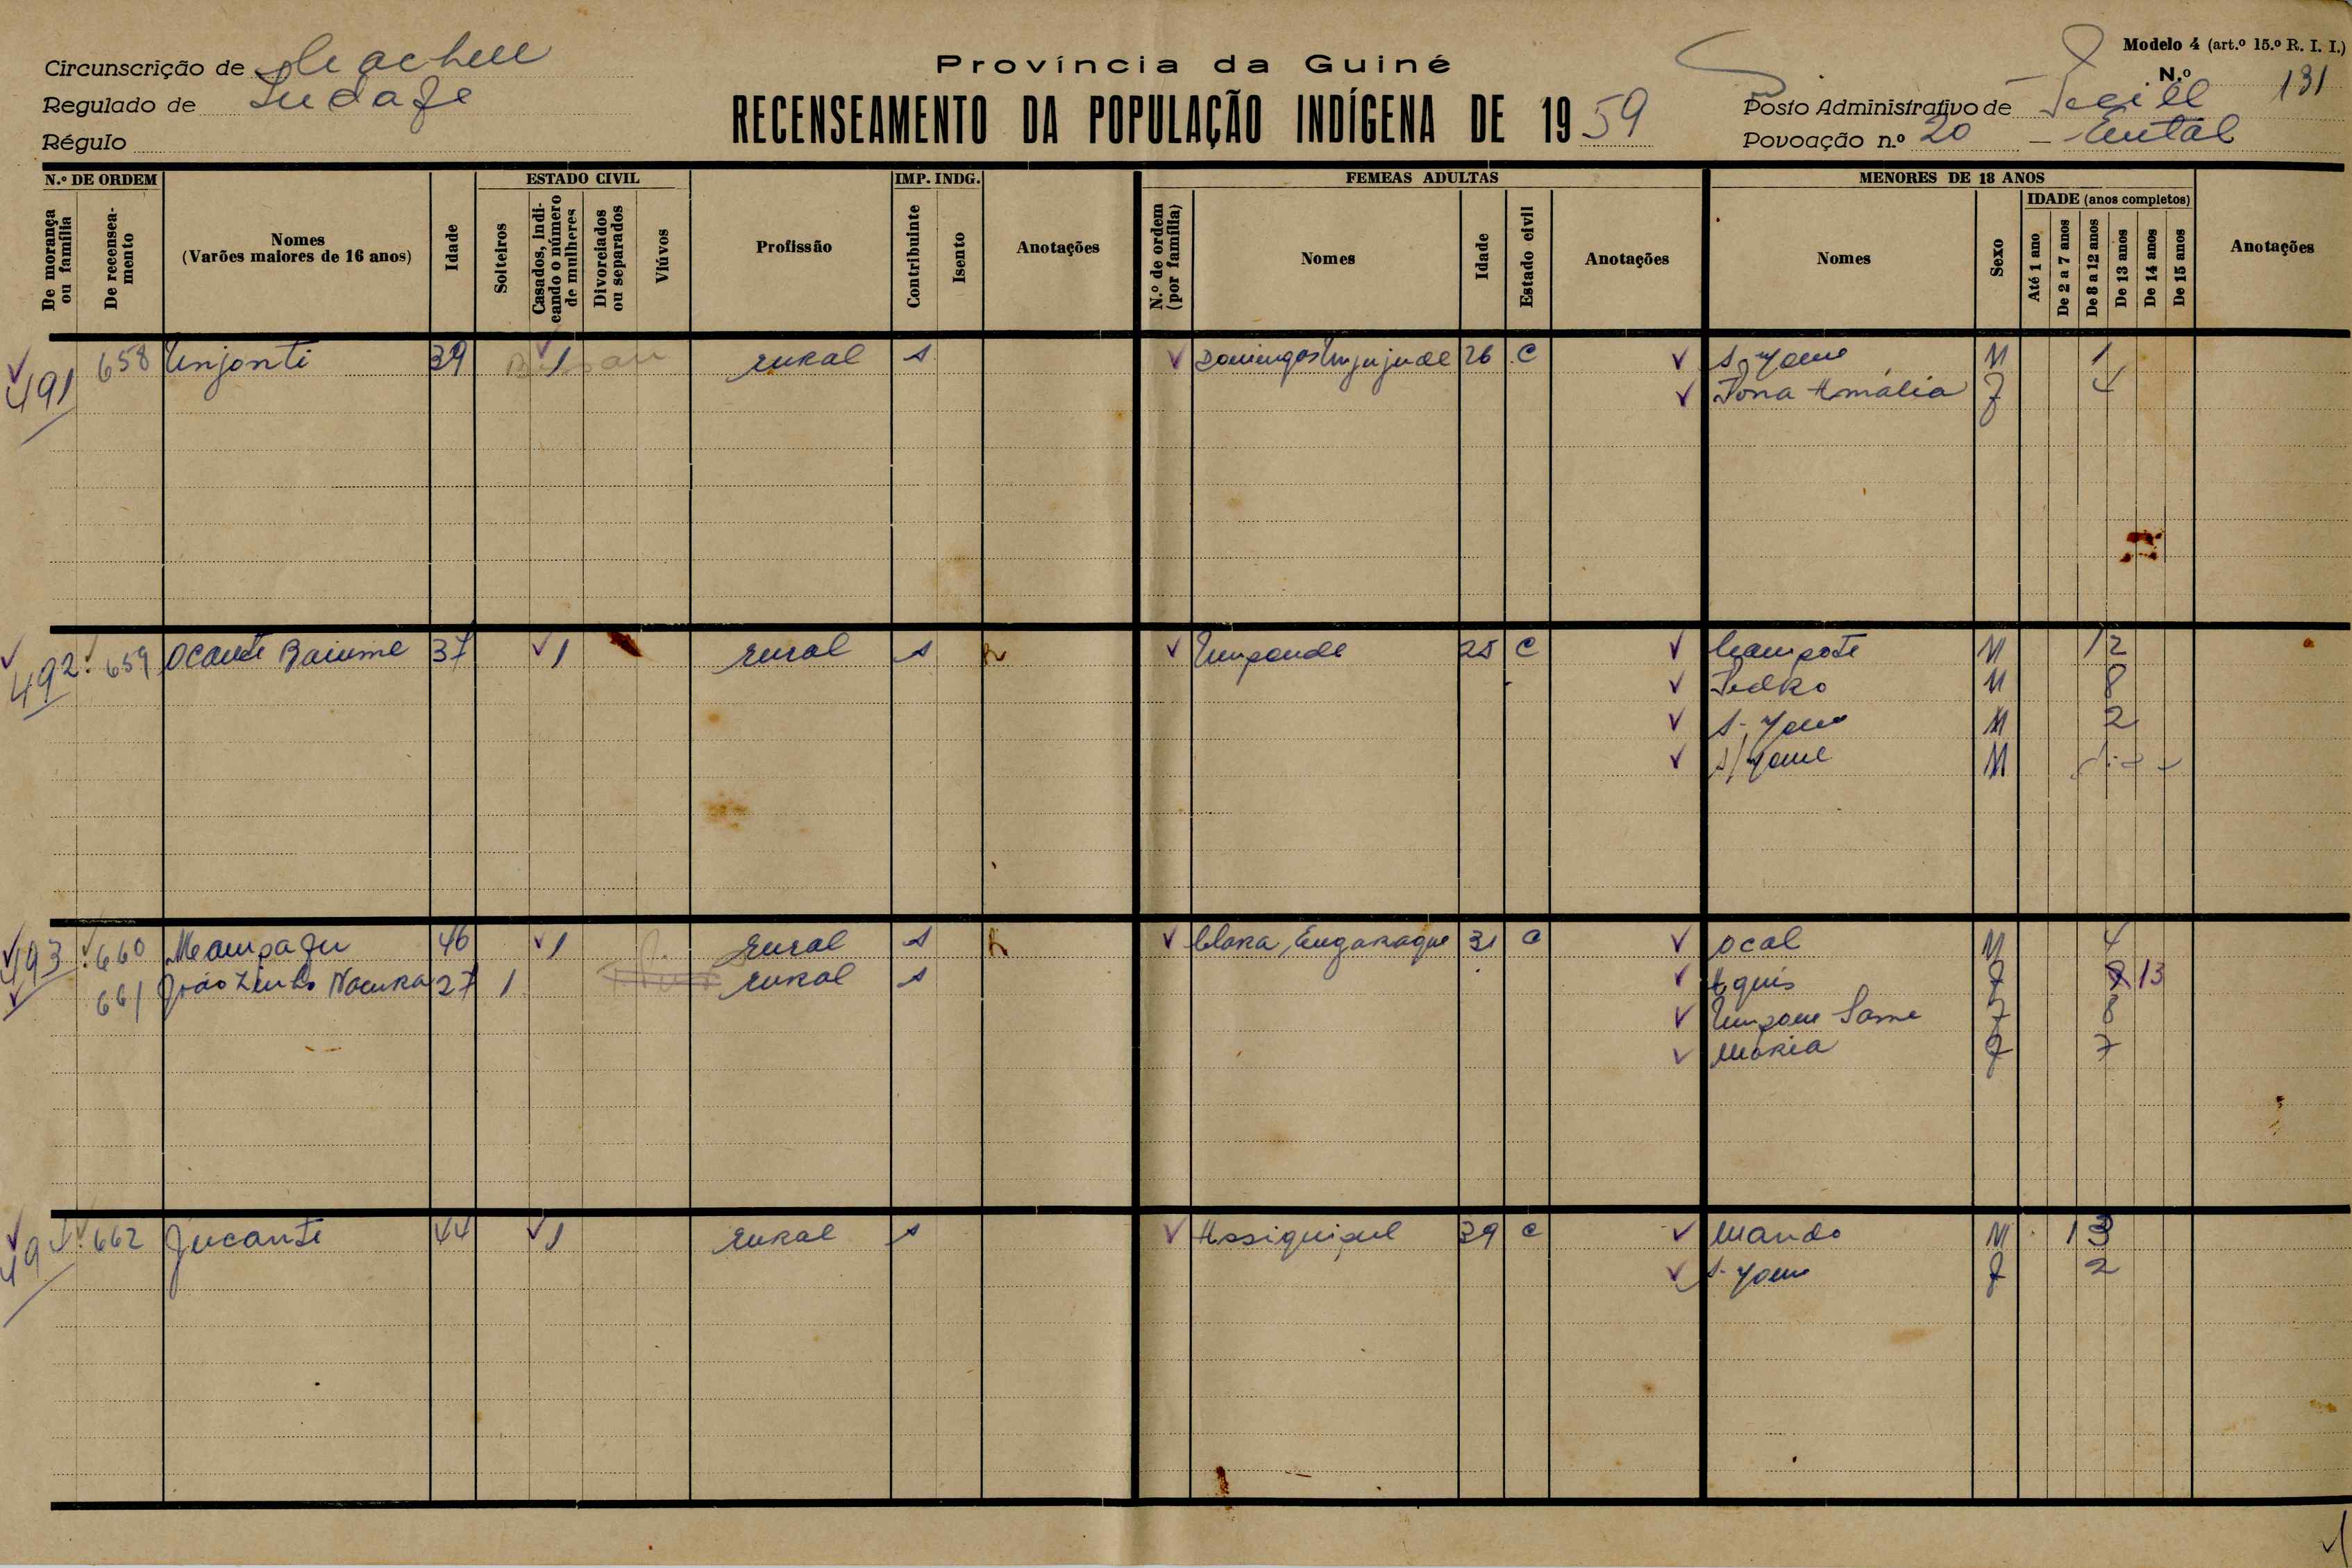 Modelo 4 (art.º 15.º R. I. I.)
Circunscrição de
Província da Guiné
N.º 131
Regulado de
RECENSEAMENTO DA POPULAÇÃO INDÍGENA DE 1959
Posto Administrativo de
Régulo
Povoação n.º 20 –
N.º DE ORDEM
ESTADO CIVIL
IMP. INDG.
FEMEAS ADULTAS
MENORES DE 18 ANOS
De morança ou família
De recenseamento
Nomes
(Varões maiores de 16 anos)
Idade
Solteiros
Casados, indicando o número de mulheres
Divorciados ou separados
Viúvos
Profissão
Contribuinte
Isento
Anotações
N.º de ordem (por família)
Nomes
Idade
Estado civil
Anotações
Nomes
Sexo
IDADE (anos completos)
Até 1 ano
De 2 a 7 anos
De 8 a 12 anos
De 13 anos
De 14 anos
De 15 anos
Anotações
491 658 Unjonti 39 1 rural s Domingas 26 C s. Nome M 1
Dona Amália F 4
492 659 Ocante Baiume 37 1 rural s 25 C Campote M 12
Pedro M 8
s. Nome M 2
s/ Nome M
493 660 46 1 rural s Clara 31 C Ocal M 4
661 27 1 rural s F 13
F 8
Maria F 7
494 662 Jucante 44 1 rural s 39 C Mando M 13
s. Nome F 2